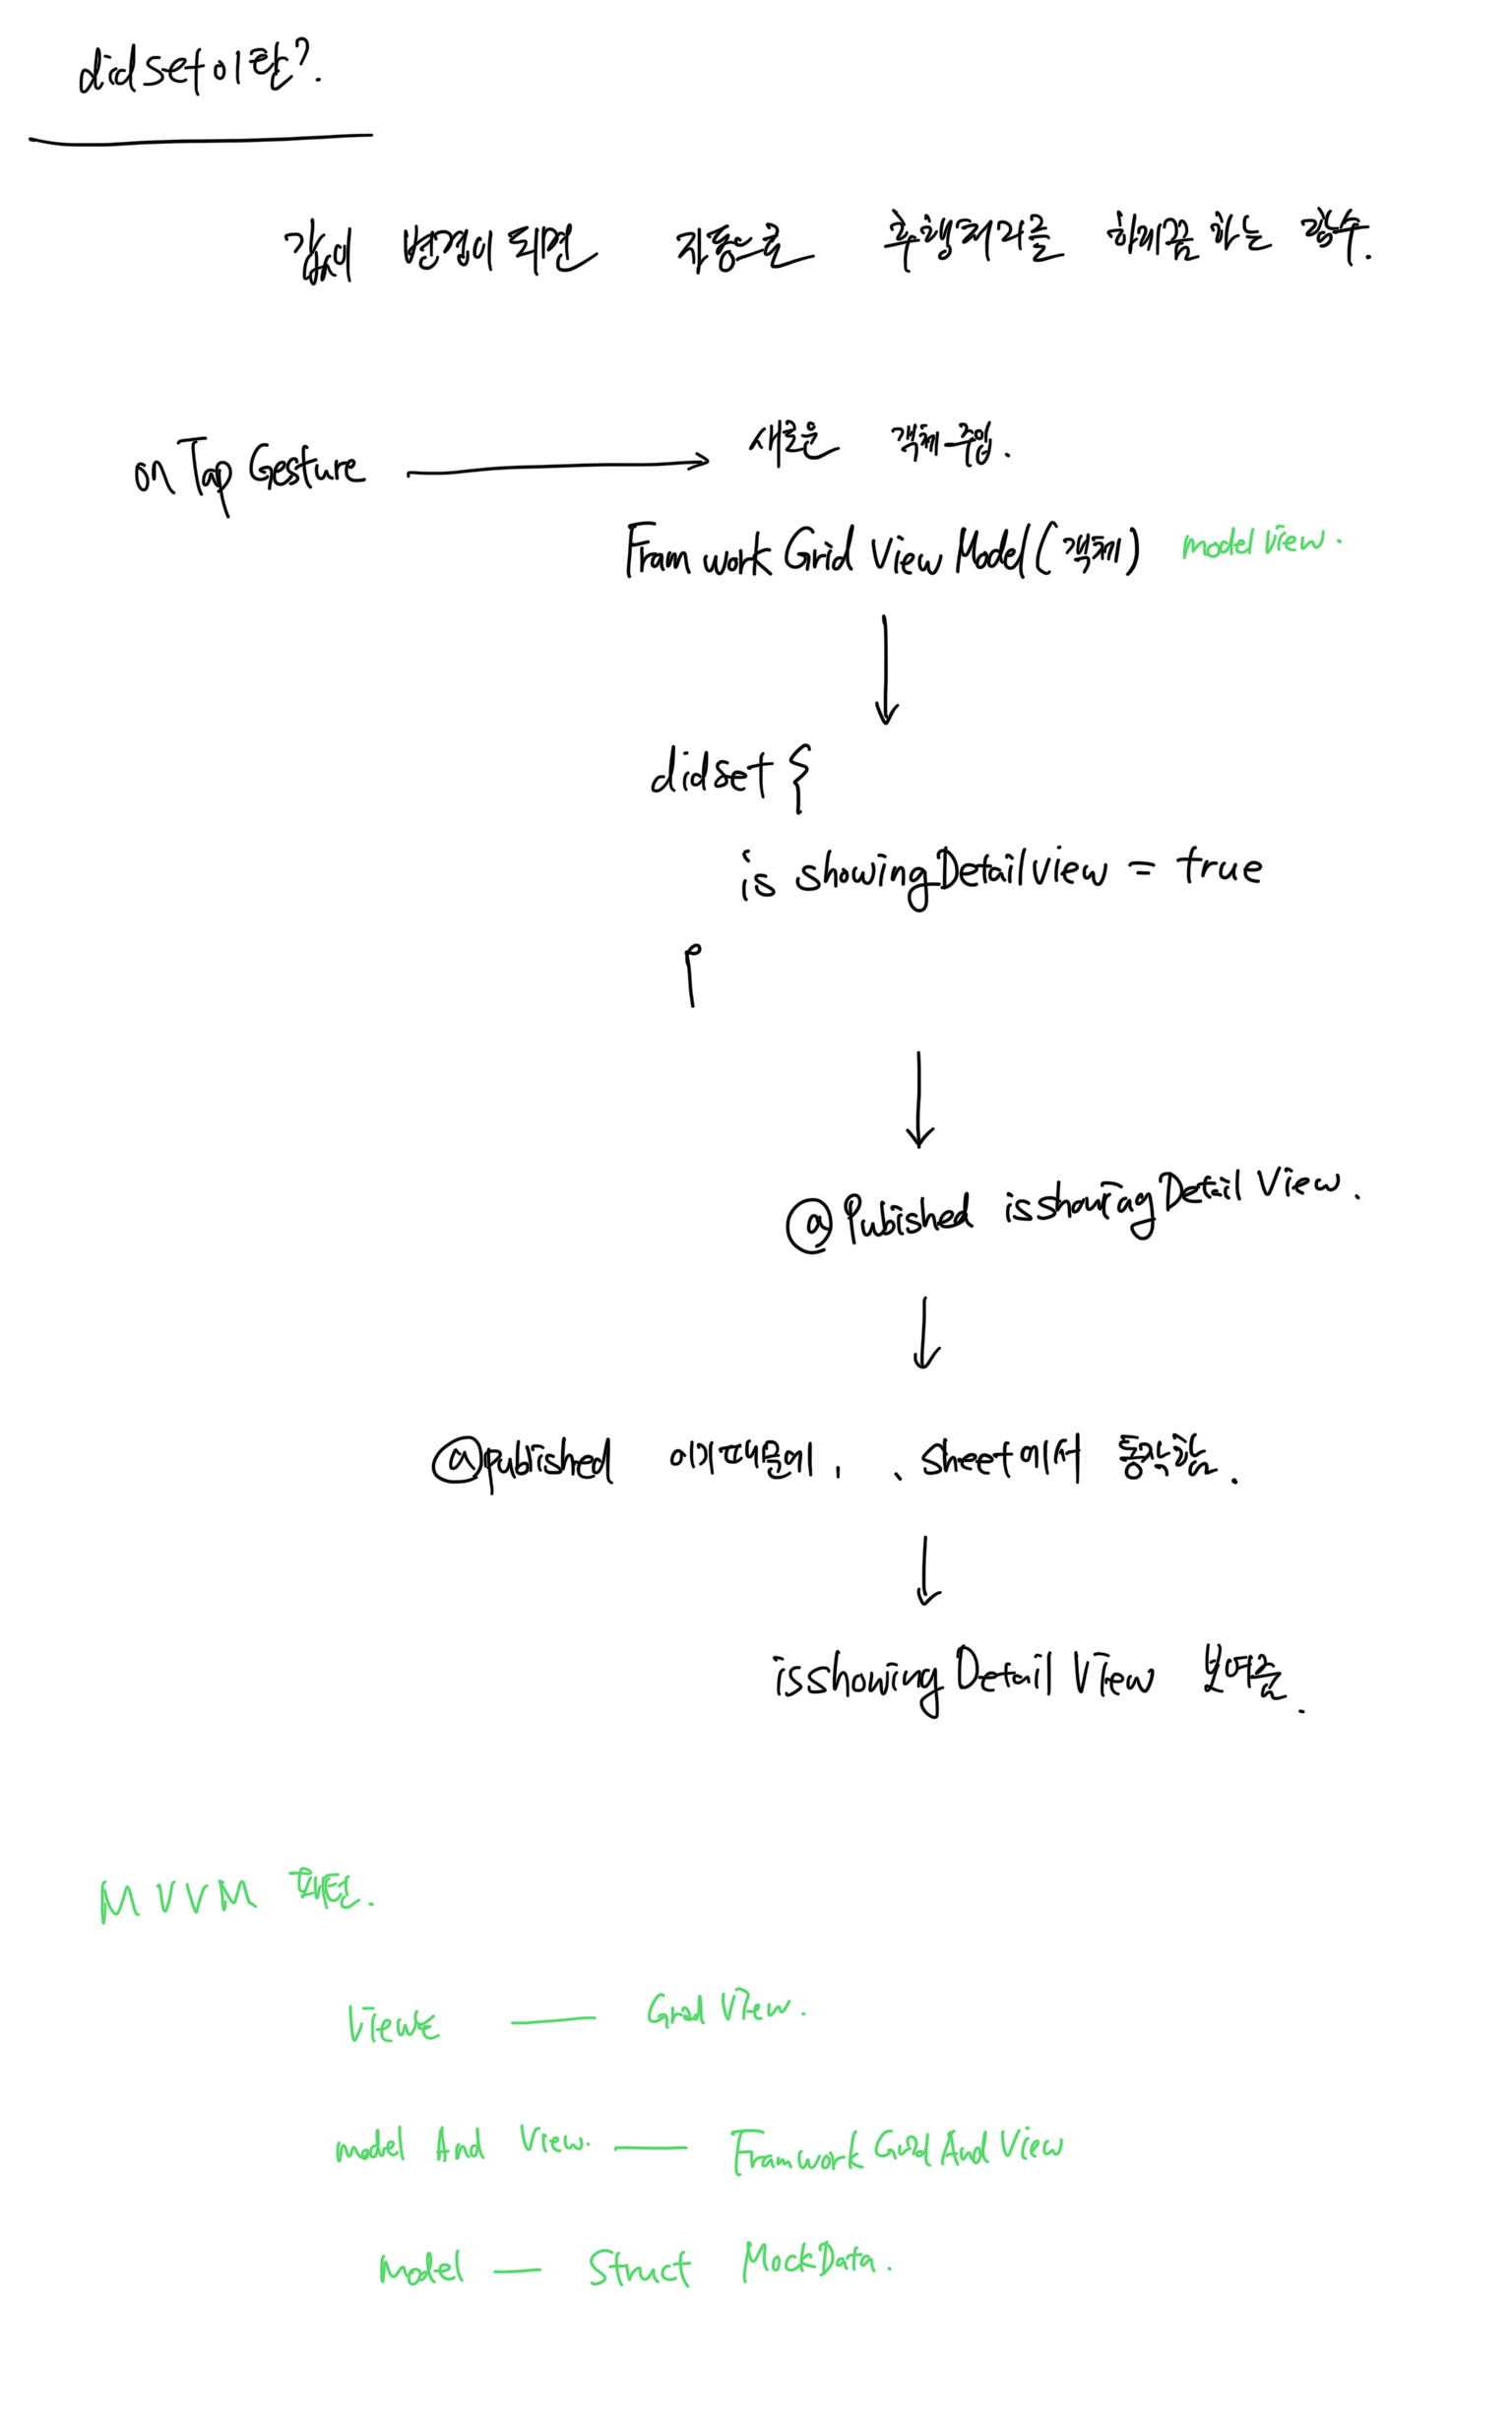 didset이란?
값이 변경이 되면 자동으로 후행처리를 해주는 함수.
onTapGesture
새로운 객체 주입.
FramworkGridViewModel(객체) modelView.
didset {
isshowingDetailView = true
}
@Pubished isshowingDetailView.
@pubished 이기때문에, .sheet에서 줍니다.
isshowingDetailView
MVVM 패턴.
View — GridView.
model And View. — FramworkGridAndView
model — Struct MockData.